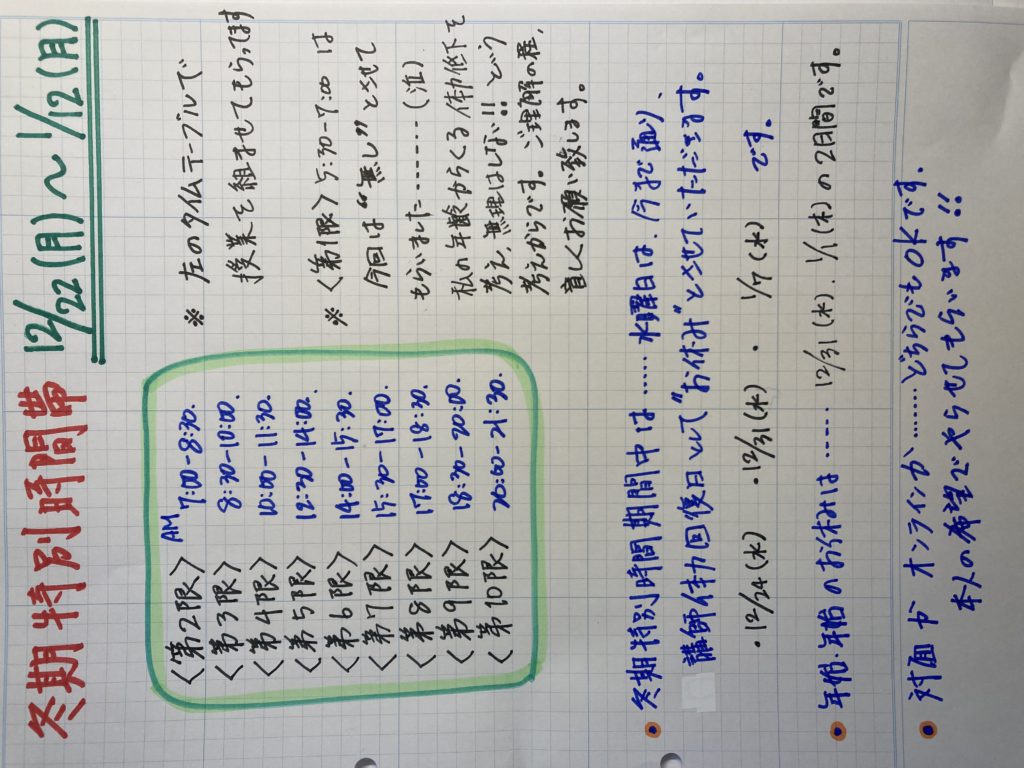 冬期特別時間帯 12/22(月)〜1/12(月)
AM
〈第2限〉 7:00-8:30.
〈第3限〉 8:30-10:00.
〈第4限〉 10:00-11:30.
〈第5限〉 12:30-14:00.
〈第6限〉 14:00-15:30.
〈第7限〉 15:30-17:00.
〈第8限〉 17:00-18:30.
〈第9限〉 18:30-20:00.
〈第10限〉 20:00-21:30.
※ 左のタイムテーブルで
授業を組ませてもらってます
※〈第1限〉5:30-7:00 は
今回は“無し”とさせて
もらいました………(泣)
私の年齢からくる体力低下を
考え、無理はしない!! という
考えからです。ご理解の程、
宜しくお願い致します。
• 冬期特別時間期間中は…… 水曜日は、(今まで通り)、
講師体力回復日として“お休み”とさせていただきます。
・12/24(水) ・12/31(水) ・1/7(水) です。
• 年始・年始のお休みは…… 12/31(水)、1/1(木)の2日間です。
• 対面か オンラインか……どちらでもOKです.
本人の希望でやらせてもらいます!!